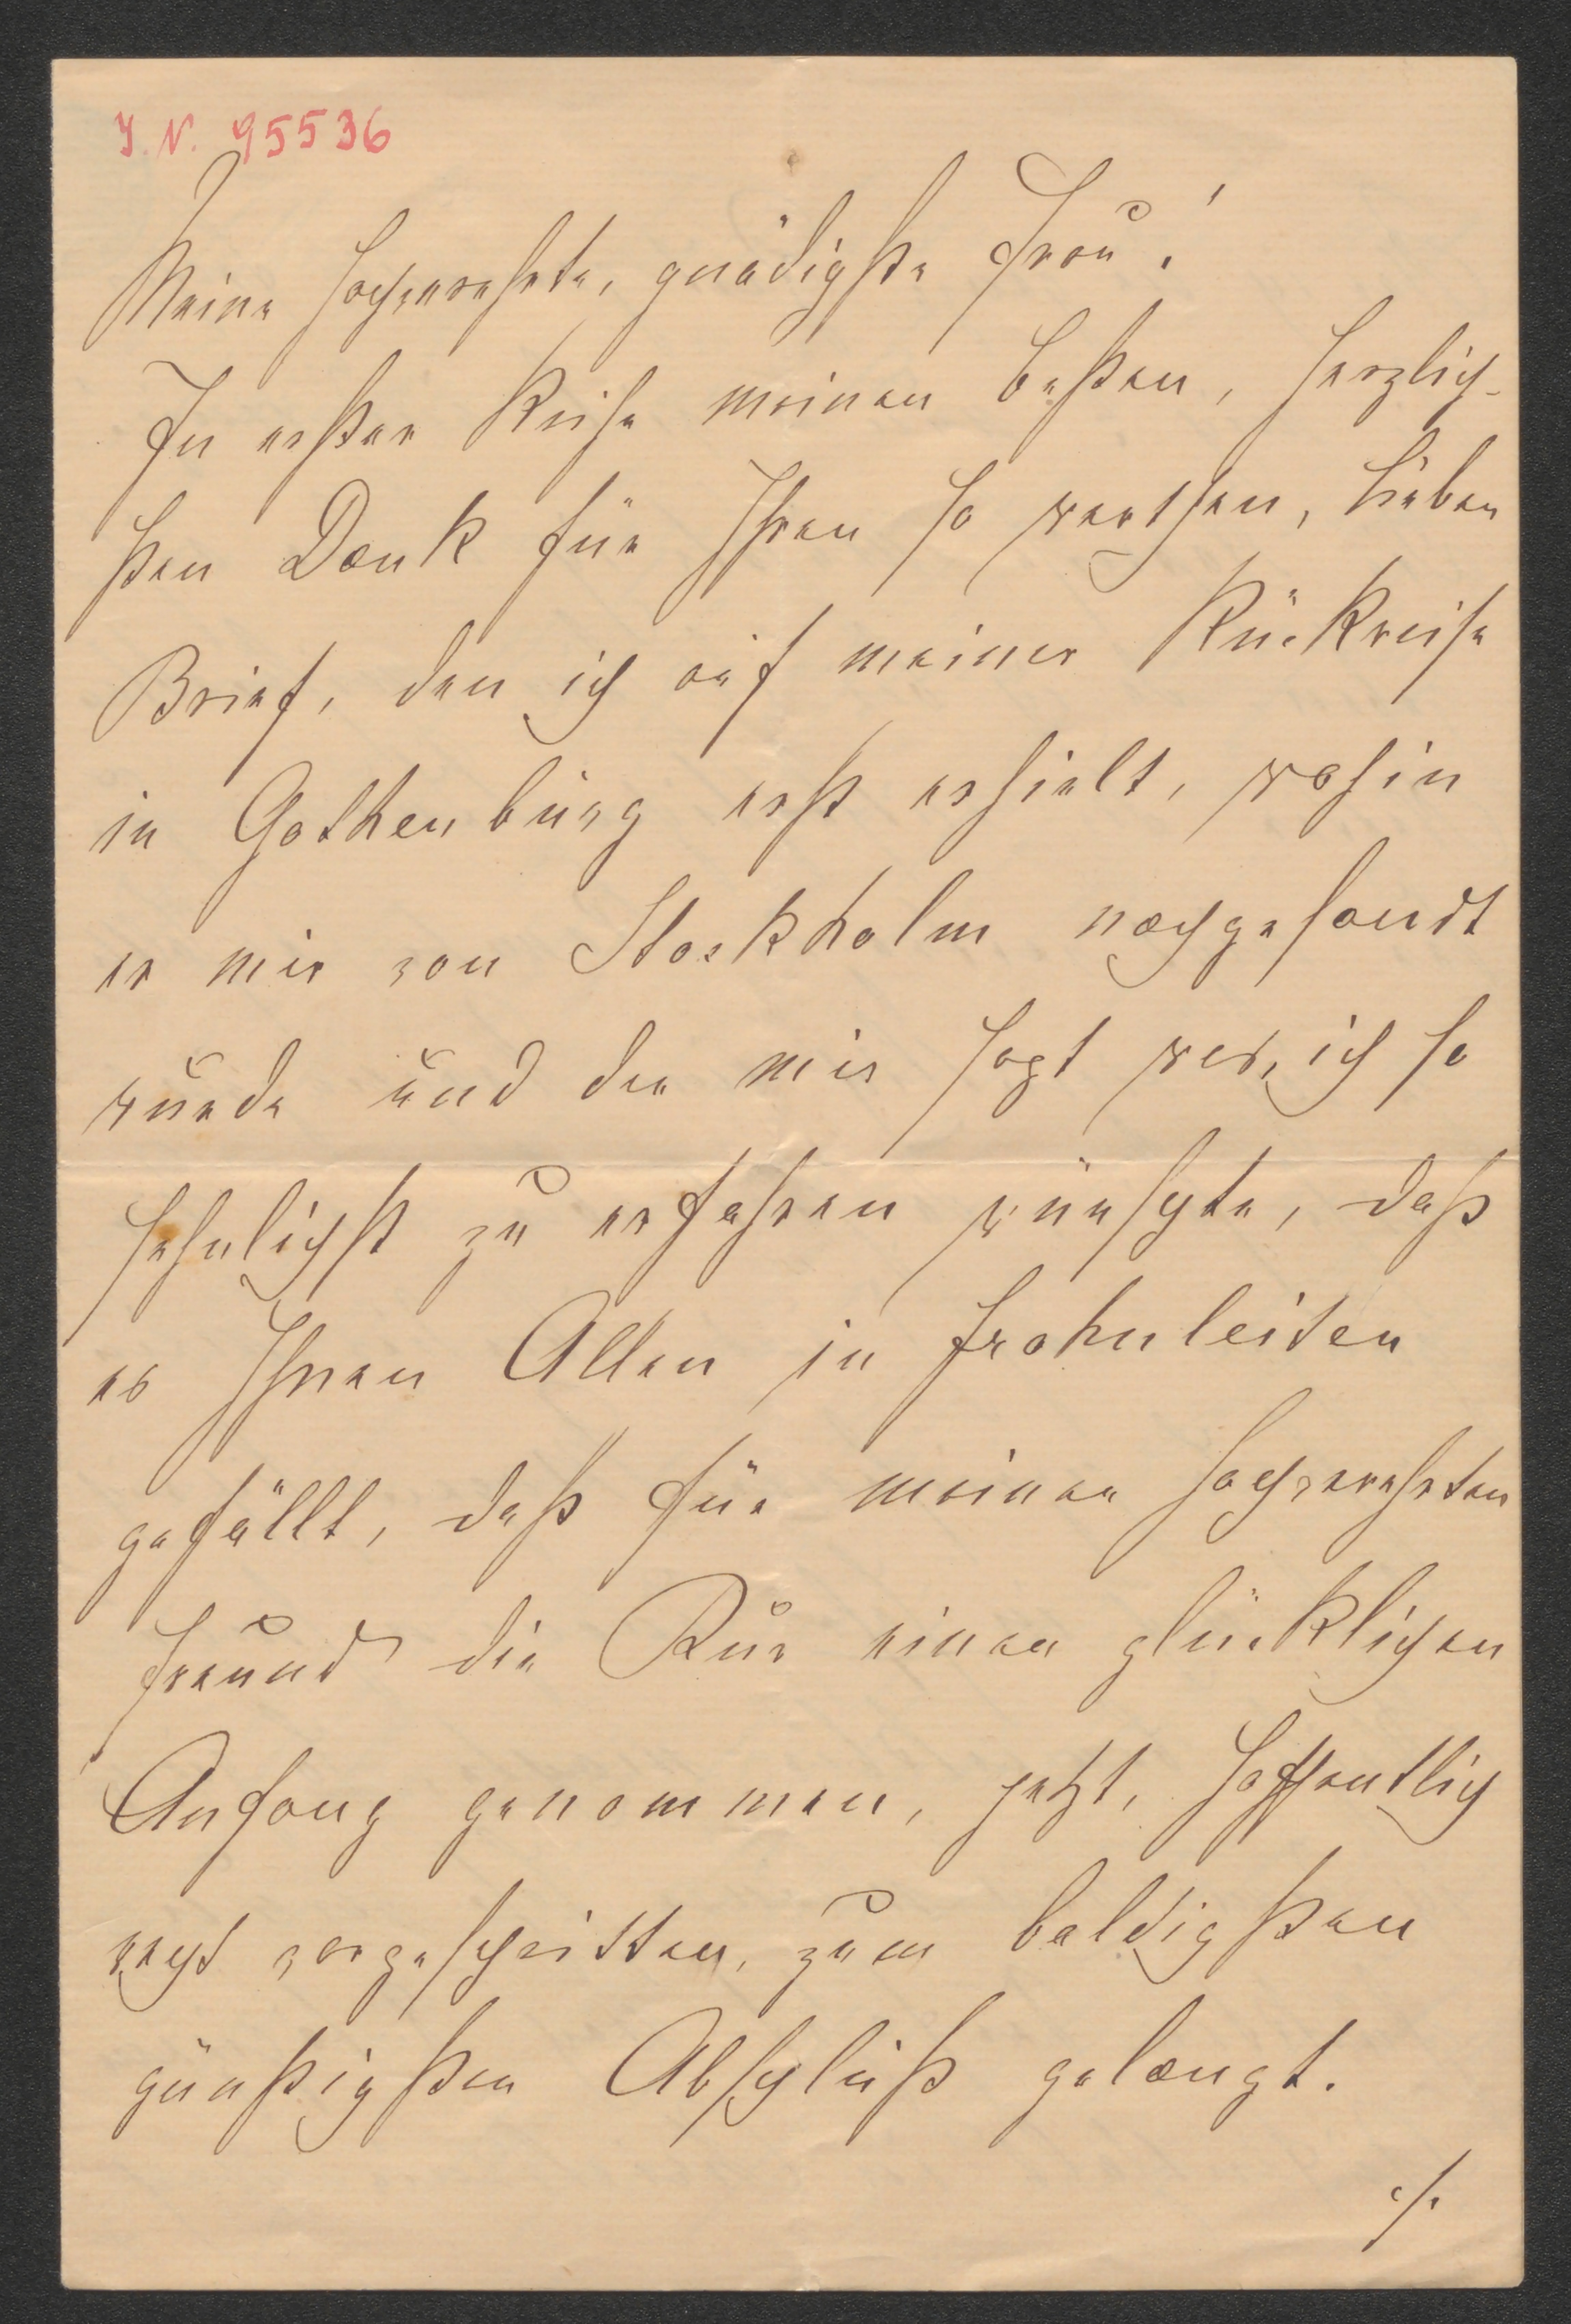 J. N. 95536
Meine hochverehrte, gnädigste Frau!
In erster Reihe meinen besten, herzlich-
sten Dank für Ihren so werthen, lieben
Brief, den ich auf meiner Rückreise
in Gothenburg erst erhielt, wohin
er mir von Stockholm nachgesandt
wurde und der mir sagt was ich so
sehnlichst zu erfahren wünschte, daß
es Ihnen Allen in Frohnleiten
gefällt, daß für meinen hochverehrten
Freund die Kur einen glücklichen
Anfang genommen, jetzt, hoffentlich
recht vorgeschritten, zum baldigsten
günstigsten Abschluß gelangt.
./.